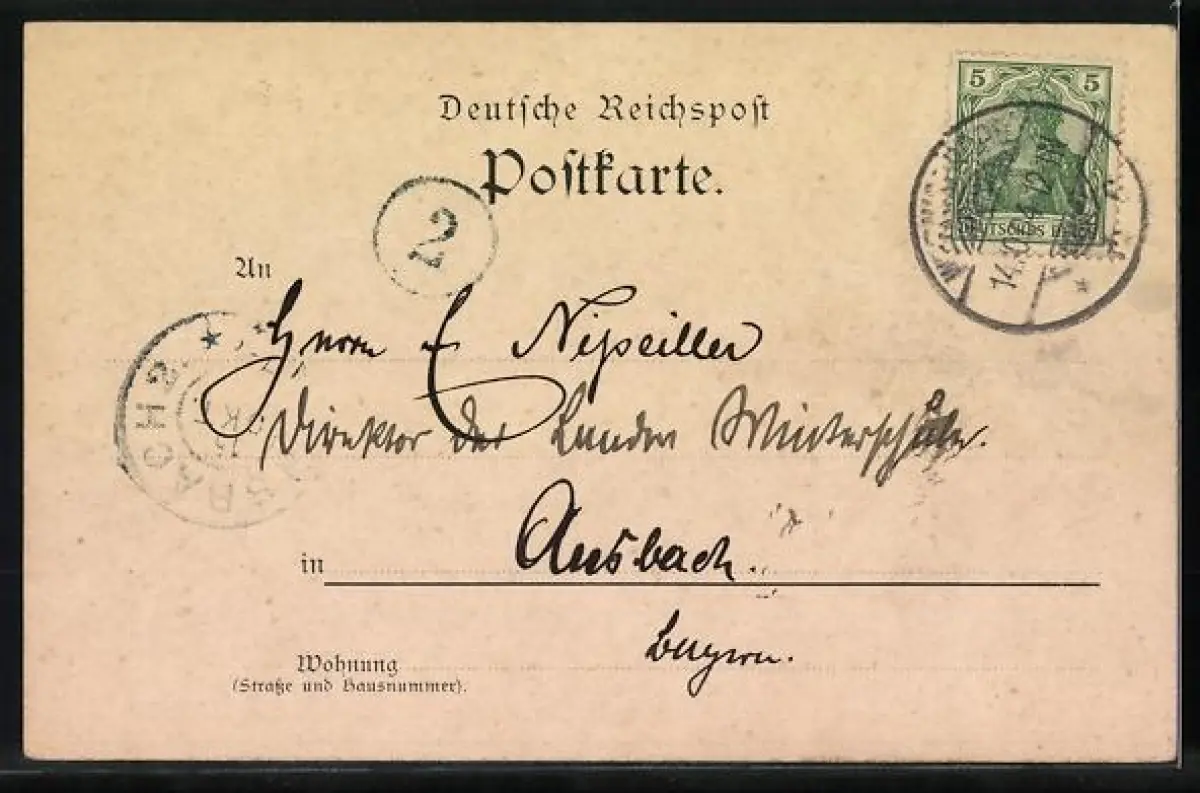 Deutsche Reichspost
Postkarte.
5 5
DEUTSCHES REICH
14.10.
2
An
Herrn E
Direktor der Winterschule.
BACH 2.
in Ansbach.
Bayern.
Wohnung
(Straße und Hausnummer).